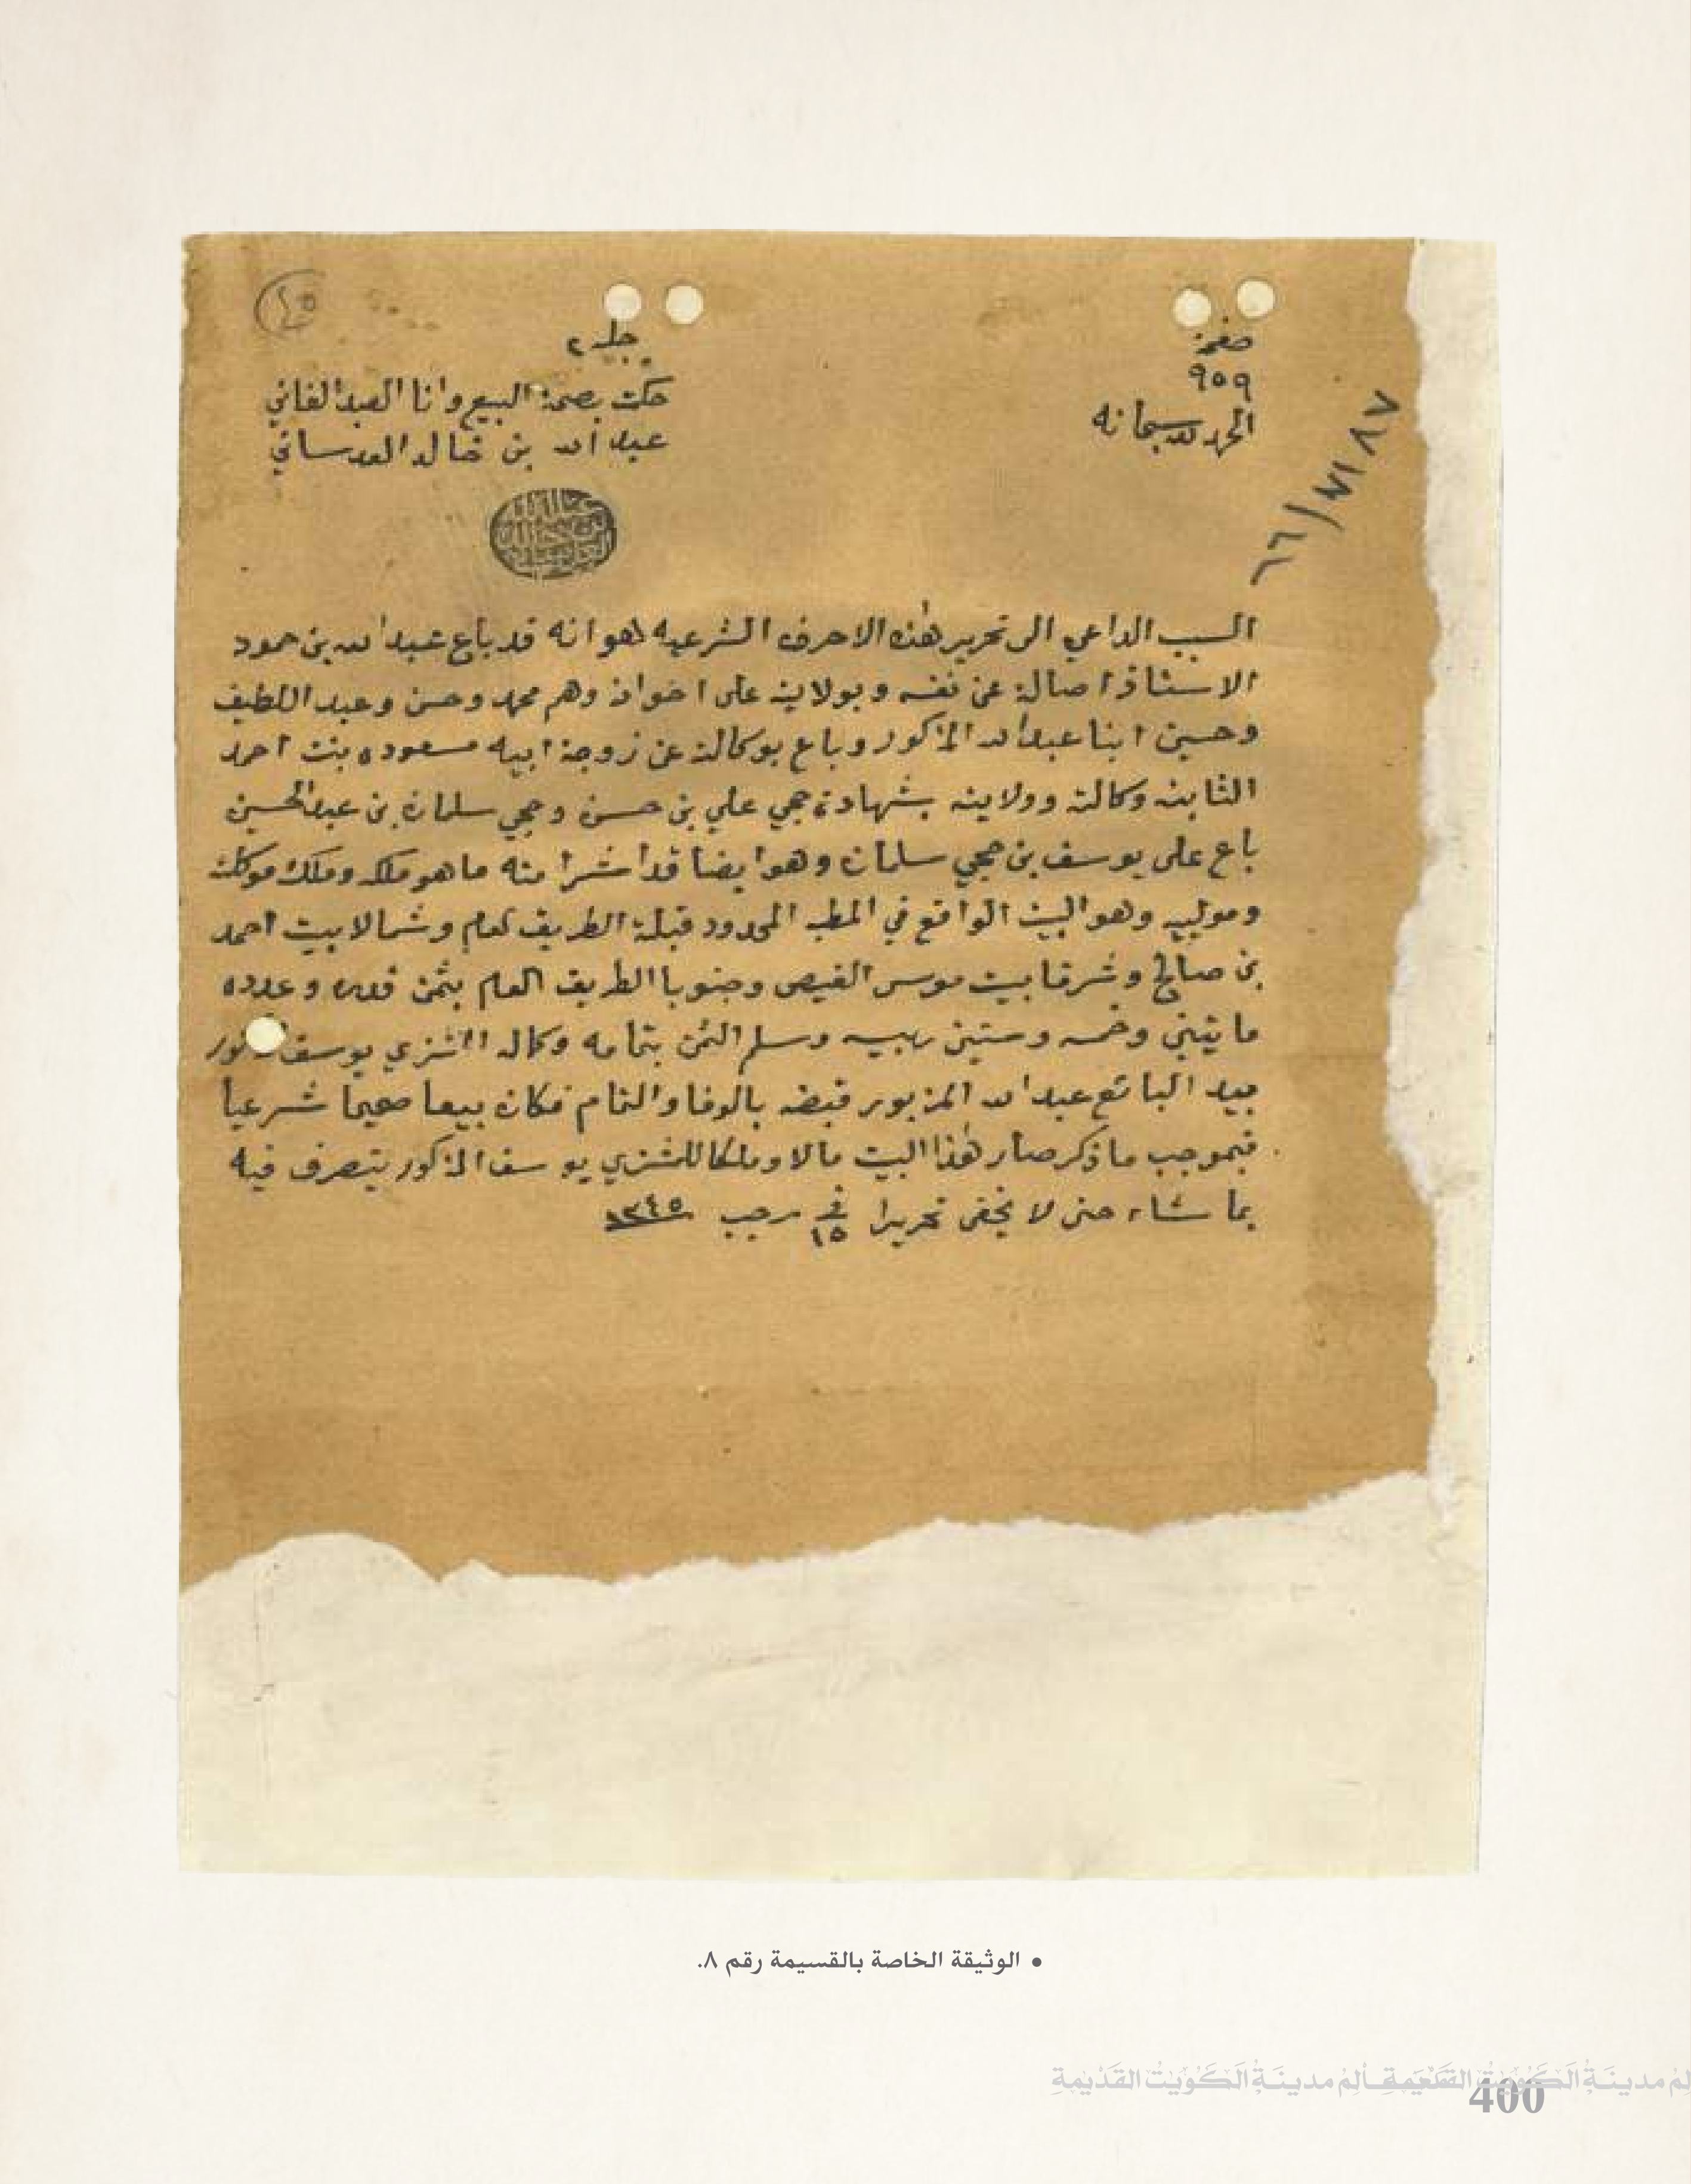 صفحة
٩٥٩
الحمد لله سبحانه
جلد ٢
حكمت بصحة البيع وانا العبد الفاني
عبد الله بن خالد العدساني
السبب الداعي الى تحرير هذه الاحرف الشرعيه هو انه قد باع عبد الله بن حمود
الاستاذ اصالة عن نفسه وبولايته على اخوانه وهم محمد وحسن وعبد اللطيف
وحسين ابنا عبد الله المذكور وباع بوكالته عن زوجة ابيه مسعوده بنت احمد
الثابته وكالته وولايته بشهادة حجي علي بن حسن وحجي سلمان بن عبد الحسين
باع على يوسف بن حجي سلمان وهو ايضا قد اشرا منه ما هو ملكه وملك موكلته
وموليه وهو البيت الواقع في المطبه المحدود قبلة الطريق العام وشمالا بيت احمد
بن صالح وشرقا بيت موسى الغيص وجنوبا الطريق العام بثمن قدره وعدده
مايتين وخمسه وستين ربيه وسلم الثمن بتمامه وكماله المشتري يوسف
بيد البائع عبد الله المزبور قبضه بالوفا والتمام فكان بيعا صحيحا شرعيا
فبموجب ما ذكر صار هذا البيت مالا وملكا للمشتري يوسف المذكور يتصرف فيه
بما شاء حتى لا يخفى تحريرا في ١٥ رجب ١٣٤٥
• الوثيقة الخاصة بالقسيمة رقم ٨.
مدينة الكويت القديمة
400